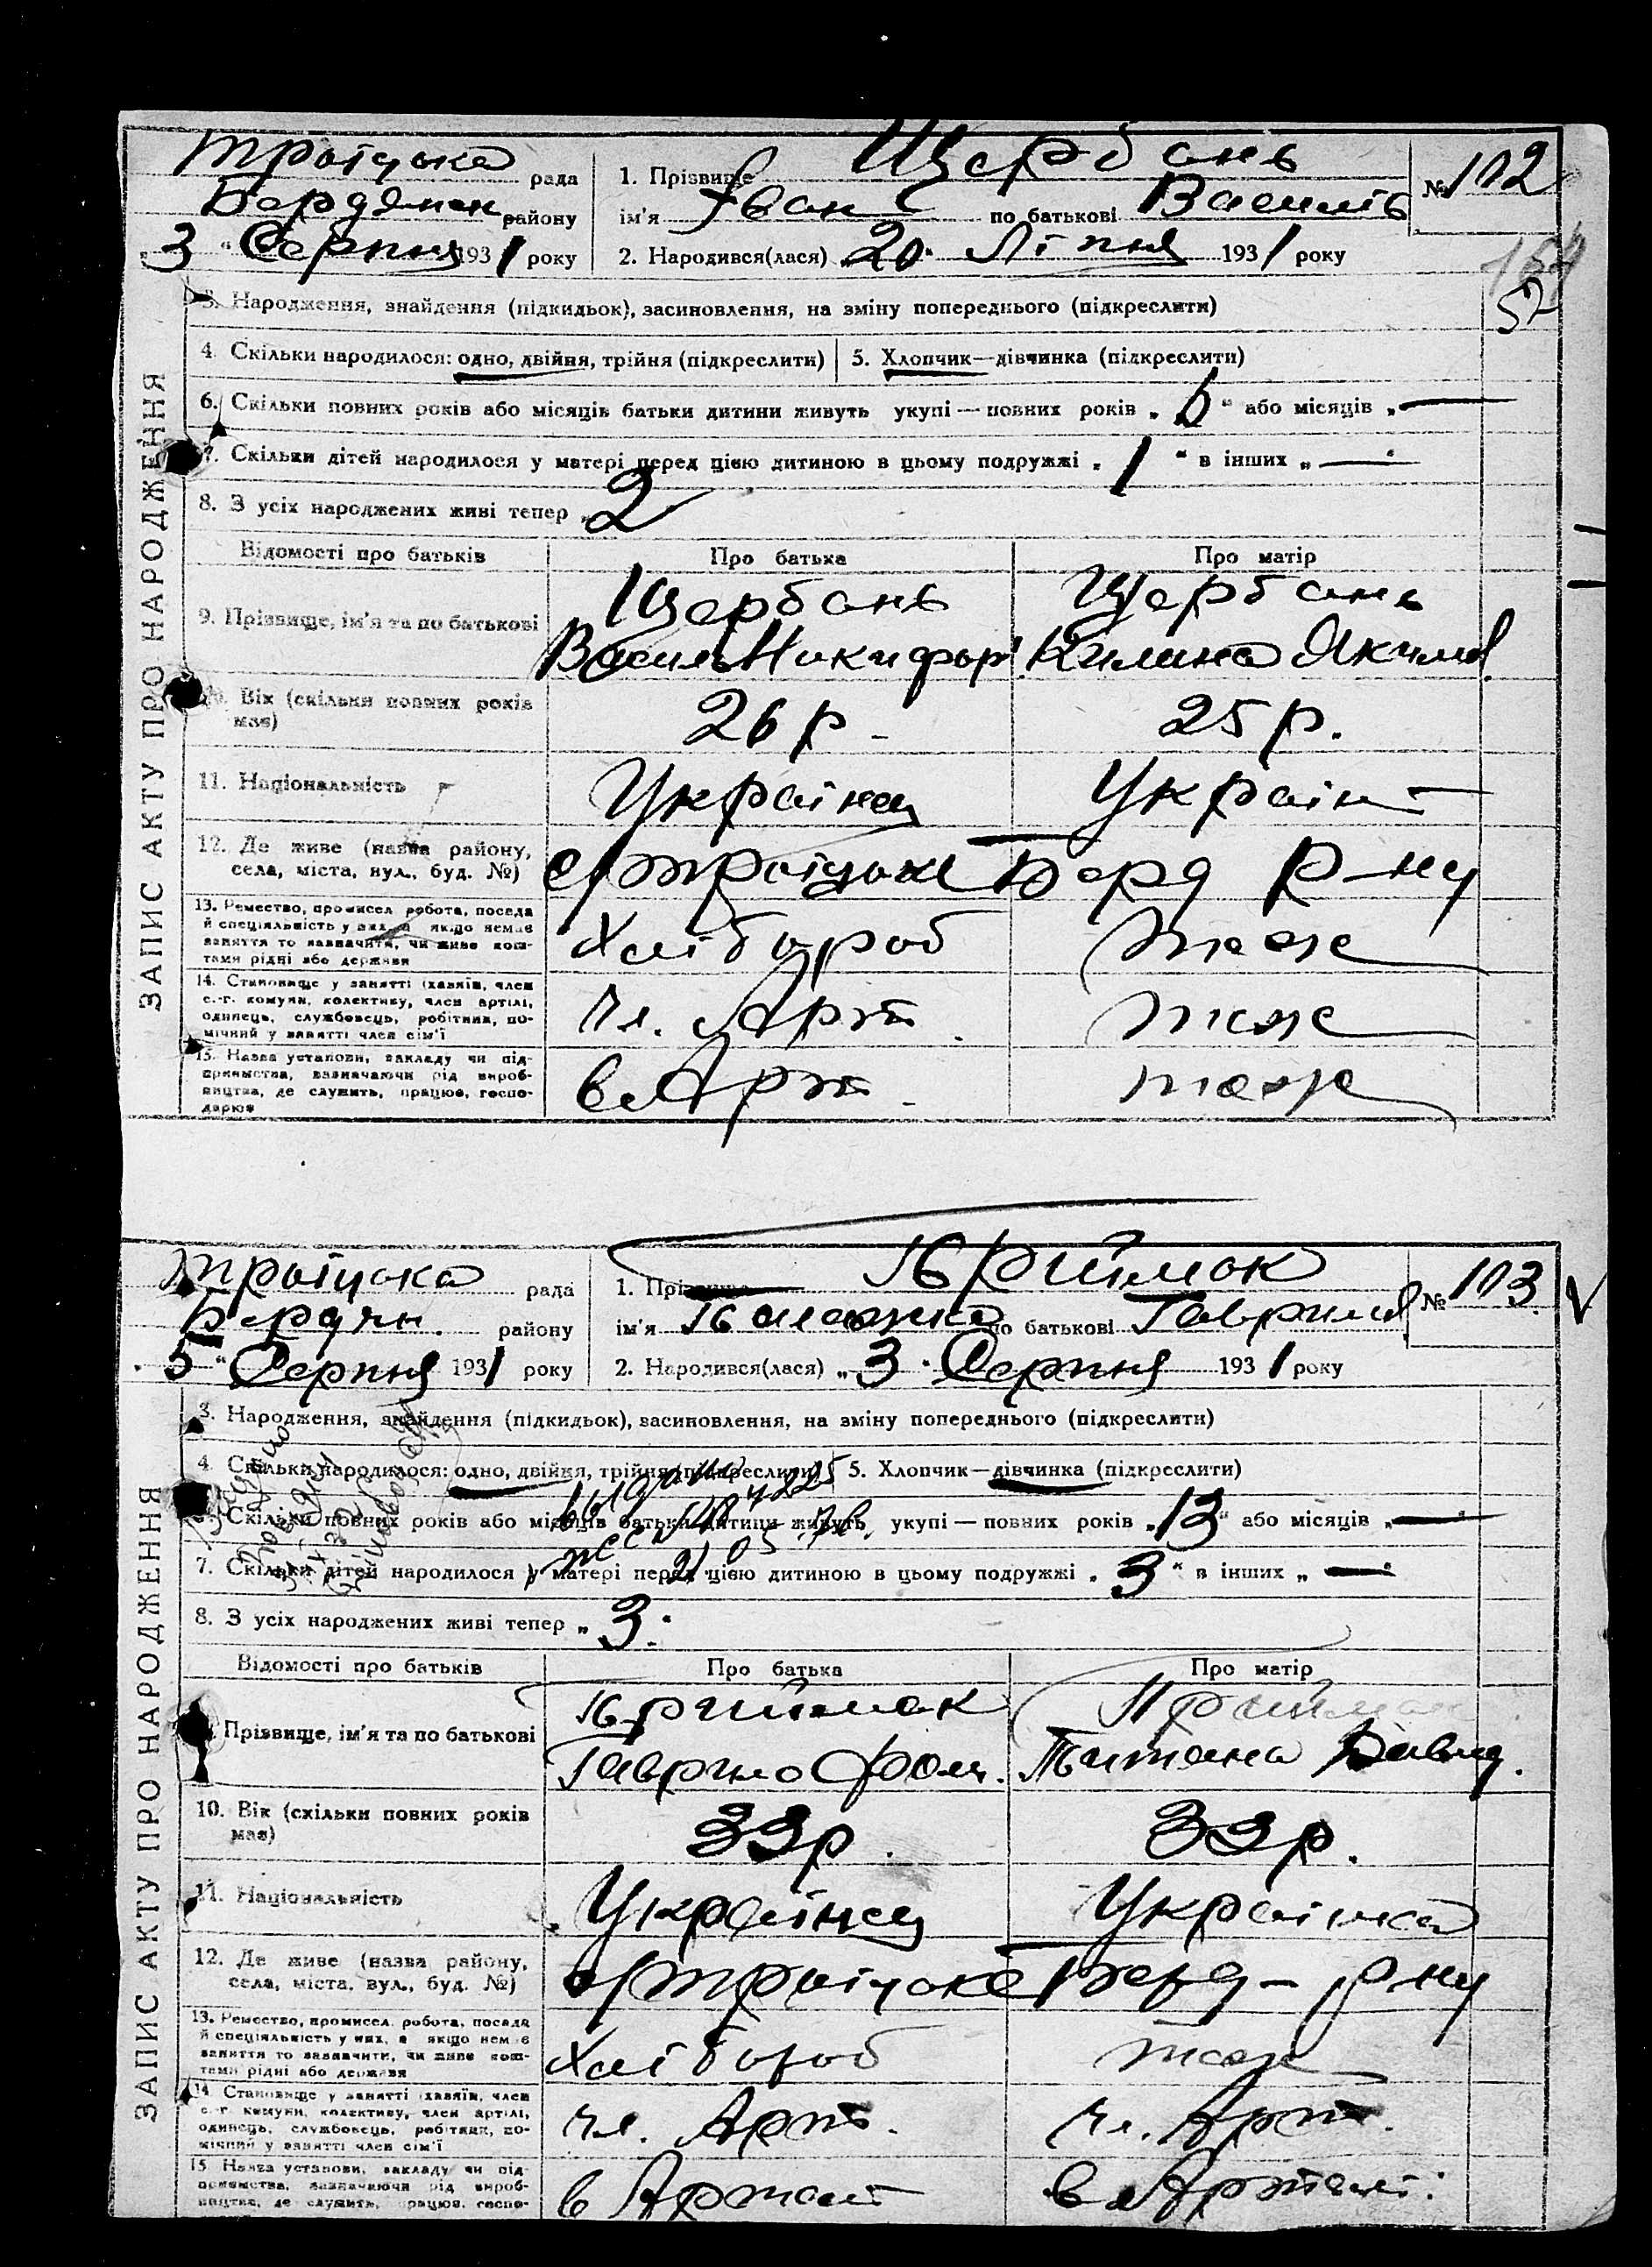 ЗАПИС АКТУ ПРО НАРОДЖЕННЯ
Троіцька рада
Бердянск району
„3“ Серпня 1931 року
1. Прізвище Щербань
ім'я Іван по батькові Василів
№ 102
2. Народився(лася) „20“ Ліпня 1931 року
52
3. Народження, знайдення (підкидьок), засиновлення, на зміну попереднього (підкреслити)
4. Скільки народилося: одно, двійня, трійня (підкреслити) 5. Хлопчик—дівчинка (підкреслити)
6. Скільки повних років або місяців батьки дитини живуть укупі — повних років „6“ або місяців „—“
7. Скільки дітей народилося у матері перед цією дитиною в цьому подружжі „1“ в інших „—“
8. З усіх народжених живі тепер „2
Відомості про батьків Про батька Про матір
9. Прізвище, ім'я та по батькові Щербань Щербань
Василь Никифор. Килина Якимів
10. Вік (скільки повних років має) 26 р 25 р.
11. Національність Українец Україн—
12. Де живе (назва району, села, міста, вул., буд. №) с/Троіцьке Берд р-ну
13. Ремество, промисел робота, посада
й спеціяльність у них, а якщо немає
заняття то зазначити, чи живе кош-
тами рідні або держави Хлібороб теж
14. Становище у занятті (хазяїн, член
с.-г. комуни, колективу, член артілі,
одинець, службовець, робітник, по-
мічний у занятті член сім'ї Чл. Арт. теж
15. Назва установи, закладу чи під-
приємства, зазначаючи рід вироб-
ництва, де служить, працює, госпо-
дарює в Арт. теж
ЗАПИС АКТУ ПРО НАРОДЖЕННЯ
Троіцька рада
Бердян. району
„5“ Серпня 1931 року
1. Прізвище Приймак
ім'я Палажка по батькові Гаврилів
№ 103
2. Народився(лася) „3“ Серпня 1931 року
3. Народження, знайдення (підкидьок), засиновлення, на зміну попереднього (підкреслити)
4. Скільки народилося: одно, двійня, трійня (підкреслити) 5. Хлопчик—дівчинка (підкреслити)
6. Скільки повних років або місяців батьки дитини живуть укупі — повних років „13“ або місяців „—“
7. Скільки дітей народилося у матері перед цією дитиною в цьому подружжі „3“ в інших „—“
8. З усіх народжених живі тепер „3“
Відомості про батьків Про батька Про матір
9. Прізвище, ім'я та по батькові Приймак Приймак
Гаврило Фом. Титяна Давид.
10. Вік (скільки повних років має) 33 р. 33 р.
11. Національність Українец Українка
12. Де живе (назва району, села, міста, вул., буд. №) с/Троіцьке Берд — р ну
13. Ремество, промисел, робота, посада
й спеціяльність у них, а якщо немає
заняття то зазначити, чи живе кош-
тами рідні або держави Хлібороб теж
14. Становище у занятті (хазяїн, член
с.-г. комуни, колективу, член артілі,
одинець, службовець, робітник, по-
мічний у занятті член сім'ї Чл. Арт. Чл. Арт.
15. Назва установи, закладу чи під-
приємства, зазначаючи рід вироб-
ництва, де служить, працює, госпо- в Артілі в Артілі